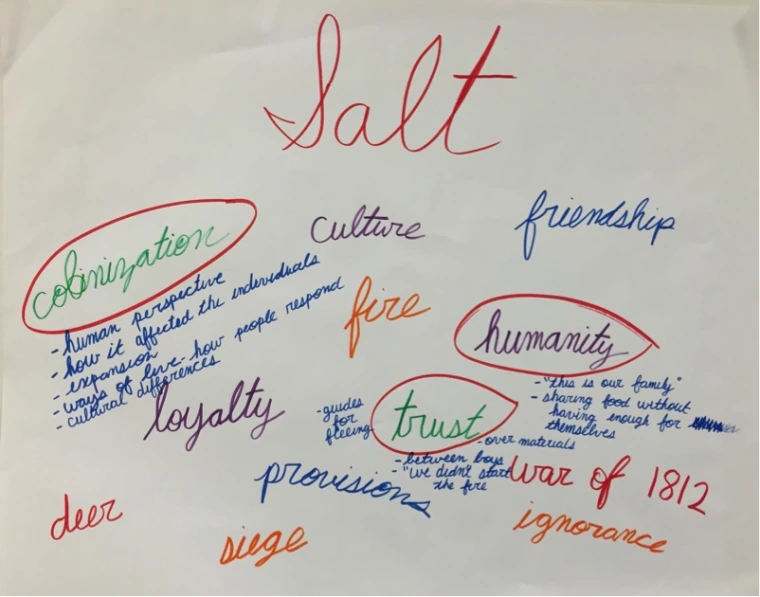 Salt
colinization
- human perspective
- how it affected the individuals
- expansion
- ways of love - how people respond
- cultural differences
culture
friendship
fire
humanity
- "this is our family"
- sharing food without
having enough for
themselves
loyalty
- guides
for
fleeing
trust
- over materials
- between boys
- "we didn't start
the fire
provisions
war of 1812
deer
siege
ignorance